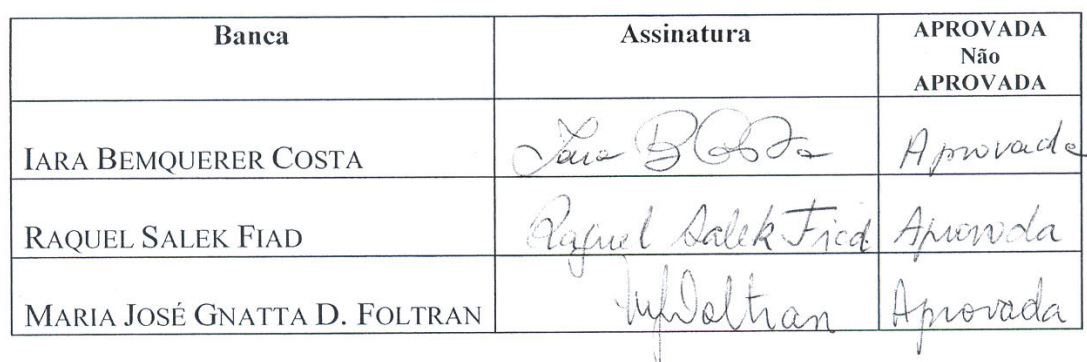 Banca Assinatura APROVADA
Não
APROVADA
IARA BEMQUERER COSTA Iara B Costa Aprovada
RAQUEL SALEK FIAD Raquel Salek Fiad Aprovada
MARIA JOSÉ GNATTA D. FOLTRAN Foltran Aprovada